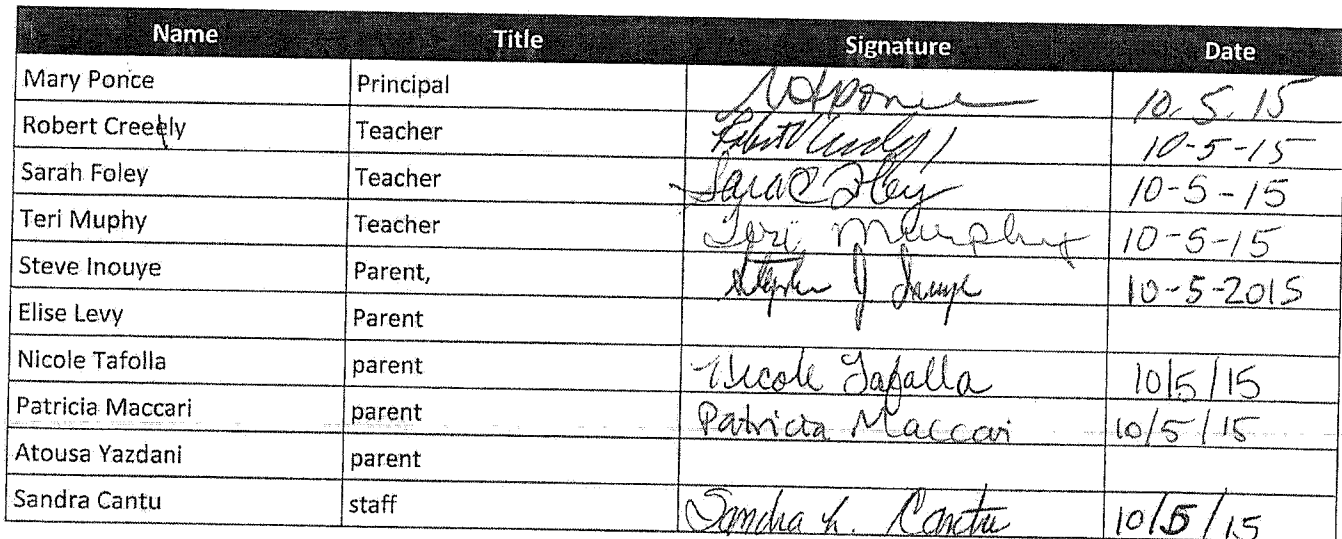 Name Title Signature Date
Mary Ponce Principal 10.5.15
Robert Creeely Teacher 10-5-15
Sarah Foley Teacher 10-5-15
Teri Muphy Teacher Teri Murphy 10-5-15
Steve Inouye Parent, Stephen J Inouye 10-5-2015
Elise Levy Parent
Nicole Tafolla parent Nicole Tafolla 10/5/15
Patricia Maccari parent Patricia Maccari 10/5/15
Atousa Yazdani parent
Sandra Cantu staff Sandra L. Cantu 10/5/15